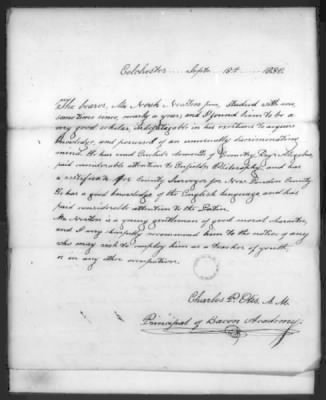 Colchester Sept. 15th
The bearer, Mr Noah Newton jun. studied with me,
sometime since, nearly a year; and I found him to be a
very good scholar, indefatigable in his exertions to acquire
knowledge, and possessed of an unusually discriminating
mind. He has read Euclid's elements of Geometry, Day's Algebra,
paid considerable attention to and has
a certificate for County Surveyor for New London County
He has a good knowledge of the English language and has
paid considerable attention to the Latin.
Mr Newton is a young gentleman of good moral character,
and I very cheerfully recommend him to the notice of any
who may wish to employ him as a teacher of youth,
or in any other occupation.
Charles P. Otis, A.M.
Principal of Bacon Academy.